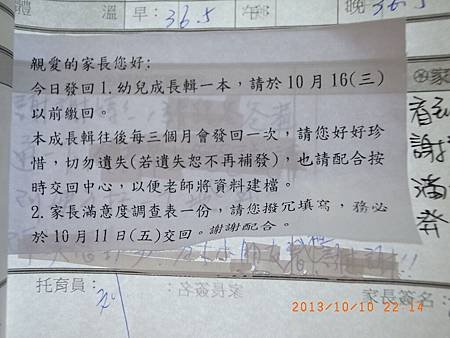 體 溫 早: 36.5 午 晚 36.5
親愛的家長您好:
今日發回1.幼兒成長輯一本,請於10月16(三)
以前繳回。
本成長輯往後每三個月會發回一次,請您好好珍
惜,切勿遺失(若遺失恕不再補發),也請配合按
時交回中心,以便老師將資料建檔。
2.家長滿意度調查表一份,請您撥冗填寫,務必
於10月11日(五)交回。謝謝配合。
托育員:
家長簽名:
2013/10/10 22:14